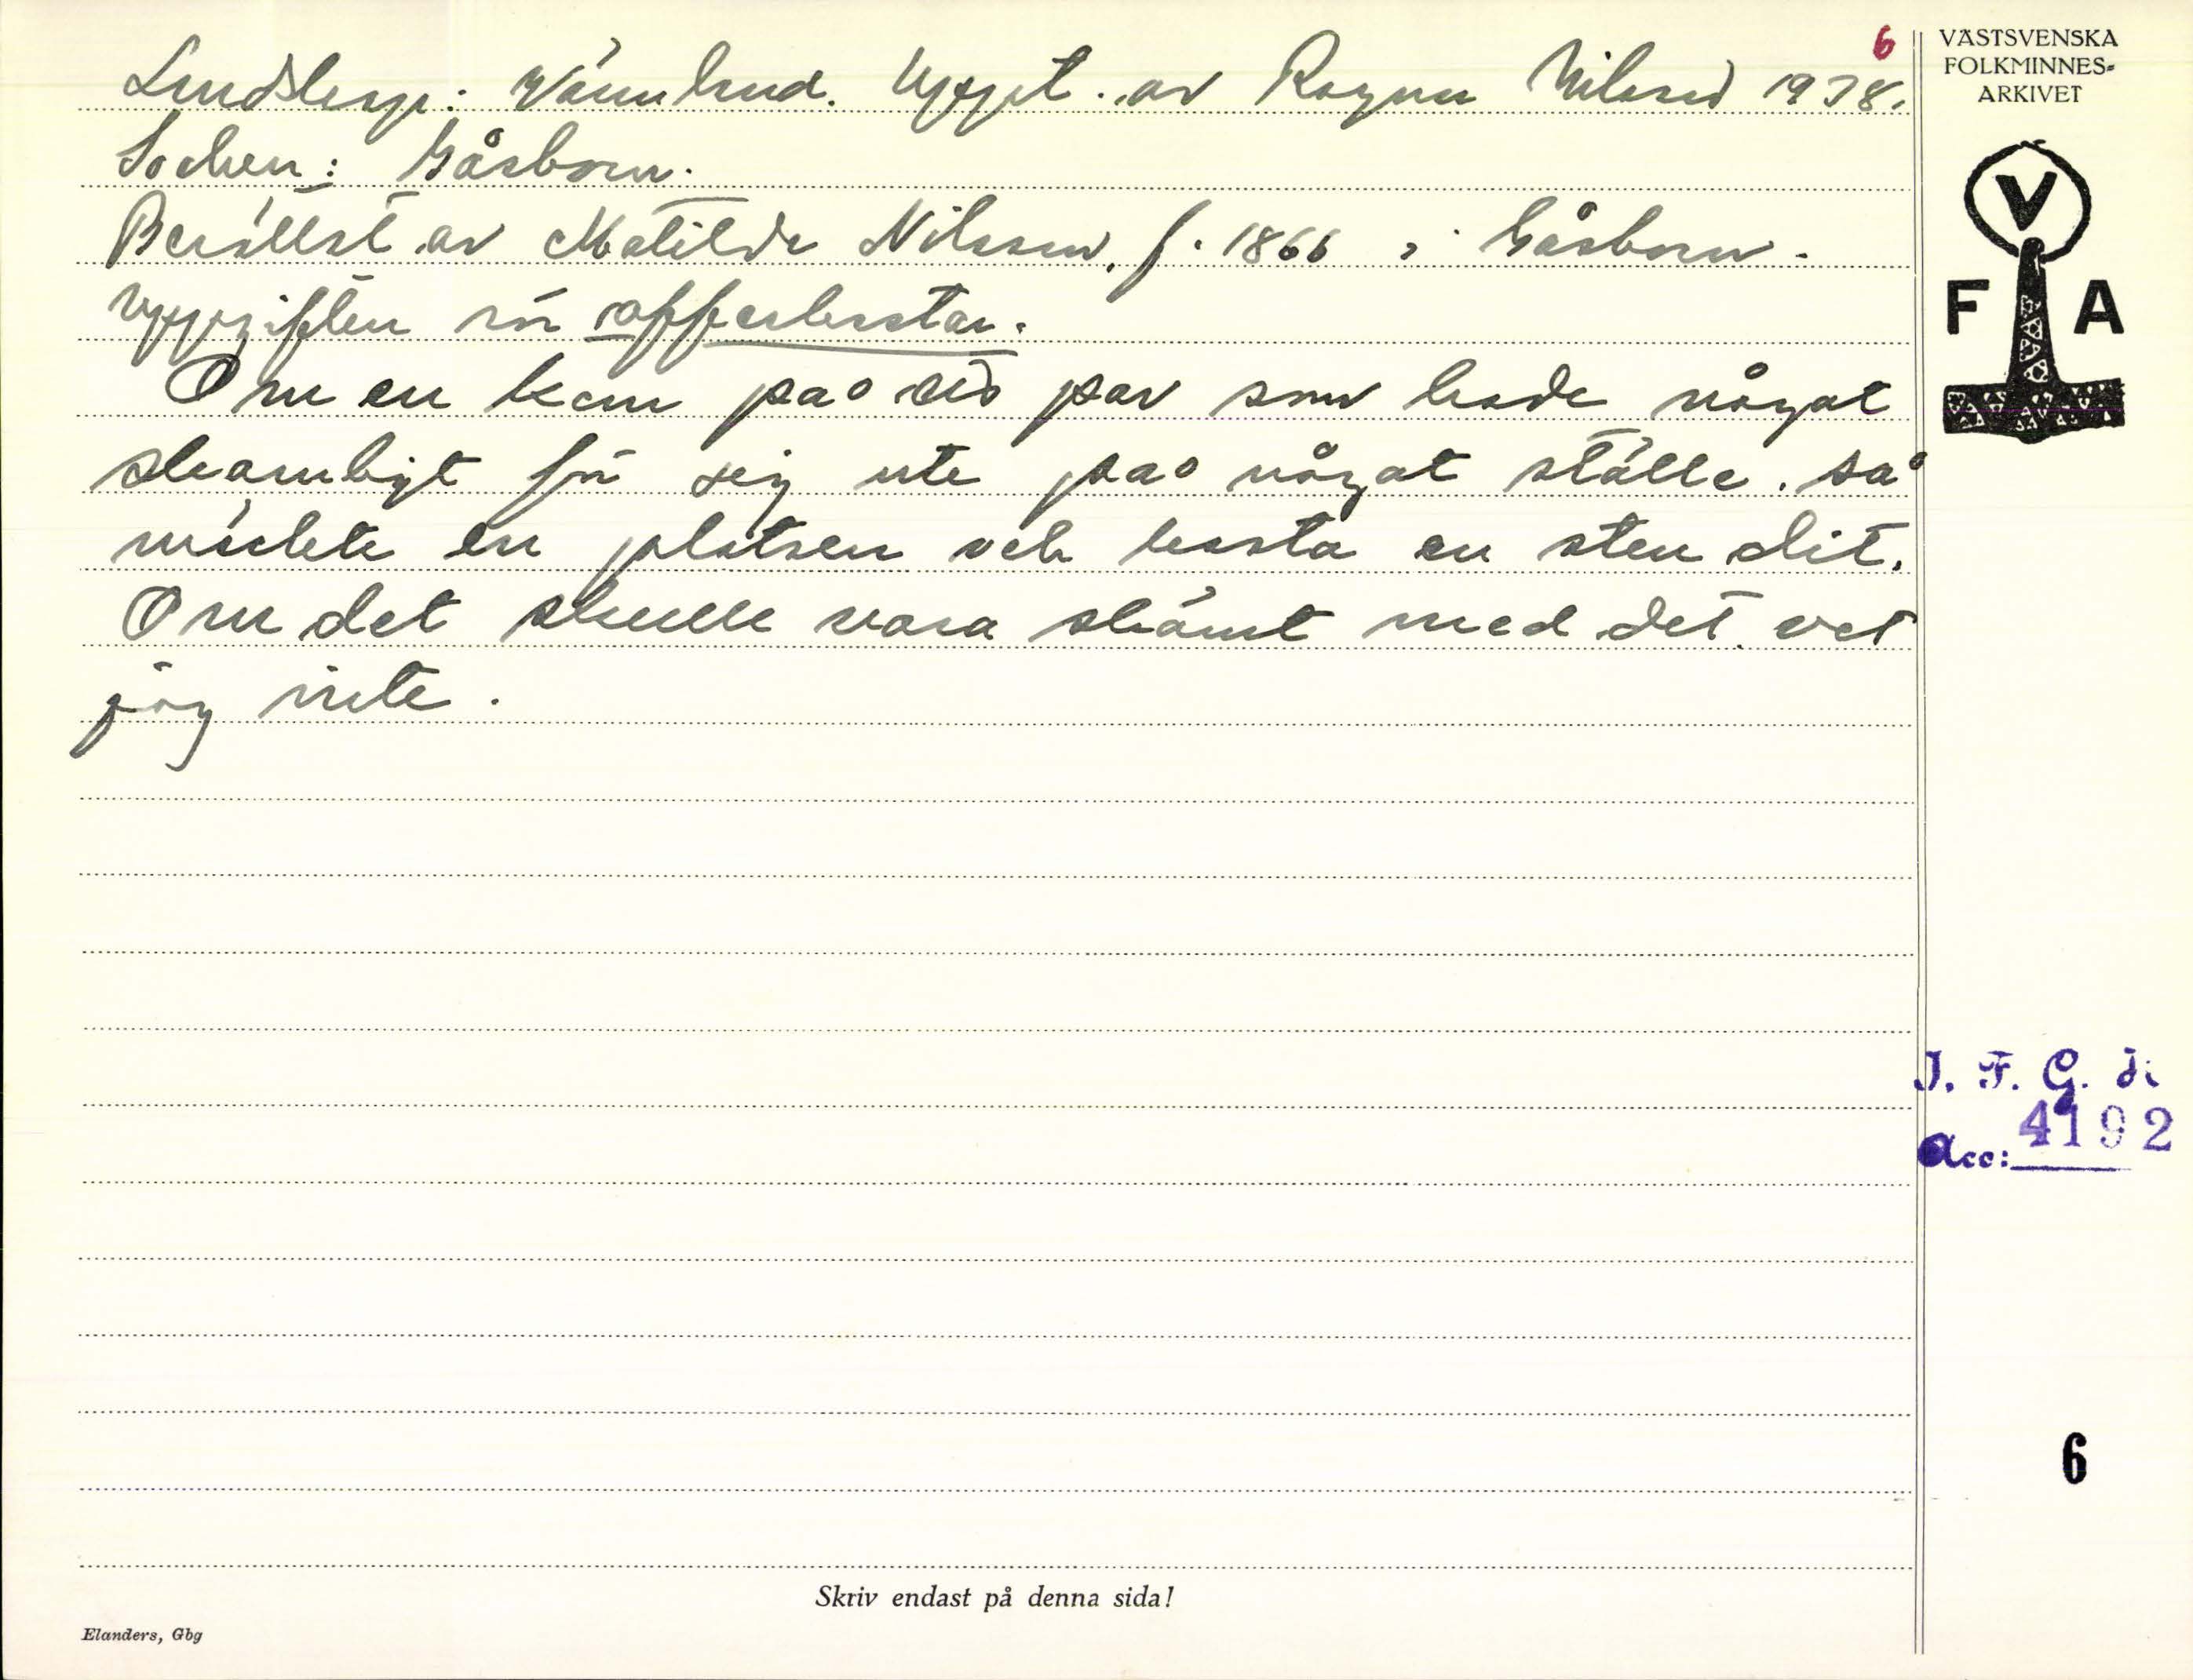 6
Landskap: Värmland. Uppt. av Ragnar Nilsson 1938.
Socken: Gåsborn.
Berättat av Matilda Nilsson, f. 1866 i Gåsborn.
Uppgiften rör offerkastar.
Om en kom på ett par som hade något
skamligt för sig ute på något ställe. så
märkte en platsen och kasta en sten dit.
Om det skulle vara skämt med det vet
jag inte.
VÄSTSVENSKA
FOLKMINNES-
ARKIVET
V
F A
I. F. G. H.
Acc: 4192
6
Skriv endast på denna sida!
Elanders, Gbg